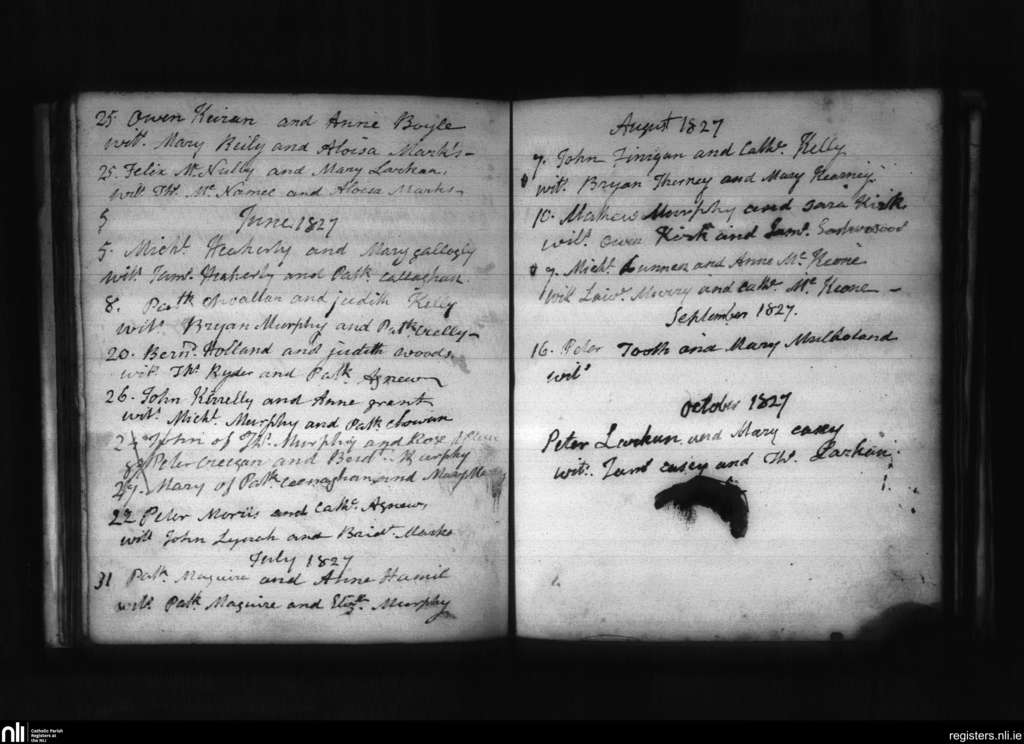 25 Owen Keiran and Anne Boyle
wit.s Mary Reily and Aloisa Marks-
25. Felix Mc Nully and Mary Larkan.
wit.s Th.s Mc Namee and Aloisa Marks-
June 1827
5. Mich.l Heaherly and Mary gallogly
wit.s Jam.s Heaherly and Pat.k Callaghan.
8. Pa.tk and judith Kelly
wit.s Bryan Murphy and Pat.k
20. Bern.d Holland and judith woods.
wit.s Th.s Ryder and Pat.k Agnew
26. John and Anne grant
wit.s Mich.l Murphy and Pat.k
John of Th.s Murphy and Rose
Peter Creegan and Brid.t Murphy
27. Mary of Pat.k and Mary
22 Peter Morris and Cath.e Agnew,
wit.s John Lynch and Brid.t Marks
July 1827
31 Pat.k Maguire and Anne Hamil
wit.s Pat.k Maguire and Eliz.th Murphy
August 1827
7. John Finigan and Cath.e Kelly
wit.s Bryan and Mary Kearney.
10. Murphy and Sara Kirk
wit.s Owen Kirk and Jam.s Eastwood
9. Mich.l and Anne Mc Keone
wit.s Law.e Murry and Cath.e Mc Keone -
September 1827.
16. Peter Tooth and Mary Mulholand
wit.s
October 1827
Peter Larkan and Mary casey
wit.s Jam.s casey and Th.s Larkan.
nli
Catholic Parish
Registers at
the NLI
registers.nli.ie